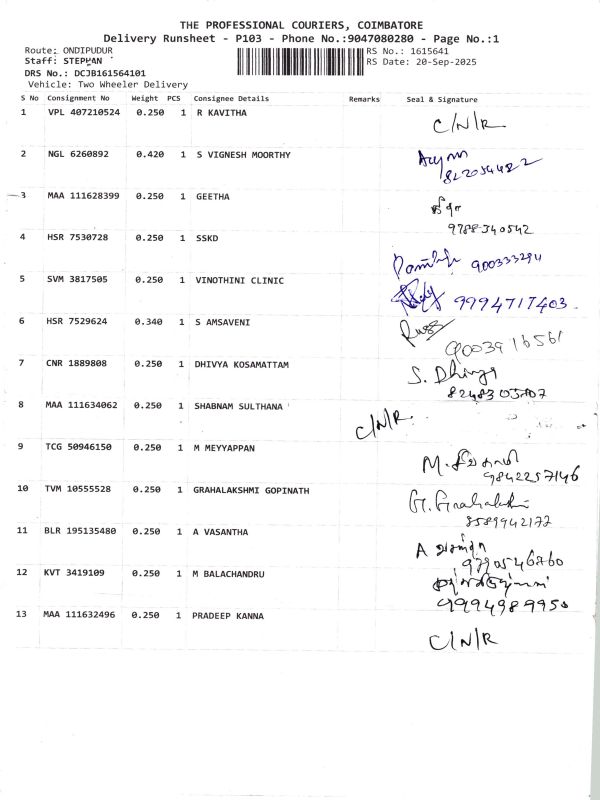 THE PROFESSIONAL COURIERS, COIMBATORE
Delivery Runsheet - P103 - Phone No.:9047080280 - Page No.:1
Route: ONDIPUDUR RS No.: 1615641
Staff: STEPHAN RS Date: 20-Sep-2025
DRS No.: DCJB161564101
Vehicle: Two Wheeler Delivery
S No Consignment No Weight PCS Consignee Details Remarks Seal & Signature
1 VPL 407210524 0.250 1 R KAVITHA
C/N/R
2 NGL 6260892 0.420 1 S VIGNESH MOORTHY
3 MAA 111628399 0.250 1 GEETHA
கீதா
9788340542
4 HSR 7530728 0.250 1 SSKD
900333294
5 SVM 3817505 0.250 1 VINOTHINI CLINIC
9994717403
6 HSR 7529624 0.340 1 S AMSAVENI
9003916561
7 CNR 1889808 0.250 1 DHIVYA KOSAMATTAM
S. Dhivya
8 MAA 111634062 0.250 1 SHABNAM SULTHANA
C/N/R.
9 TCG 50946150 0.250 1 M MEYYAPPAN
9842257146
10 TVM 10555528 0.250 1 GRAHALAKSHMI GOPINATH
G. Grahalakshmi
8589942177
11 BLR 195135480 0.250 1 A VASANTHA
A வசந்தா
12 KVT 3419109 0.250 1 M BALACHANDRU
9994989950
13 MAA 111632496 0.250 1 PRADEEP KANNA
C/N/R